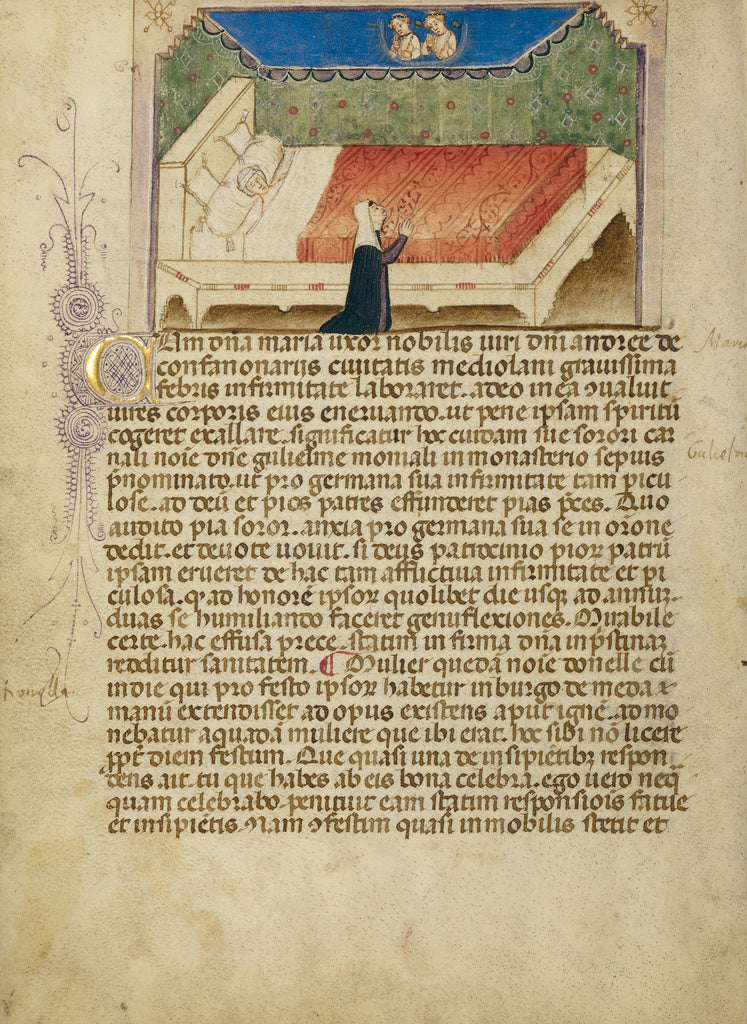 Cum dn̄a maria uxor nobilis uiri dn̄i andree de
confanonariis ciuitatis mediolani grauissima
febris infirmitate laboraret. adeo in ea ꝯualuit
uires corporis eius eneruando. ut pene ipsam spiritū
cogeret exallare. significatur hoc cuidam sue sorori car
nali noīe dn̄e gulielme moniali in monasterio sepius
p̄nominato. ut pro germana sua infirmitate tam picu
lose. ad deū et pios patres effunderet pias p̄ces. Quo
audito pia soror. anxia pro germana sua se in or̄one
dedit. et deuote uouit. si deus patrocinio pioꝝ patrū
ipsam erueret de hac tam afflictiua infirmitate et pi
culosa. ꝙ ad honorē ipsoꝝ quolibet die usqꝫ ad annū
duas se humiliando faceret genuflexiones. Mirabile
certe. hac effusa prece. statim in firma dn̄a in p̄stinaꝫ
redditur sanitatem. ¶ Mulier quedā noīe donelle cū
in die qui pro festo ipsoꝝ habetur in burgo de meda
manū extendisset ad opus existens aput ignē. admo
nebatur a quadā muliere que ibi erat. hoc sibi nō licere
ꝓpt̄ diem festum. Que quasi una de insipiētibꝫ respon
dens ait. tu que habes ab eis bona celebra. ego uero neq̄
quam celebrabo. penituit eam statim responsiōis fatue
et insipiētis. Nam ꝯfestim quasi inmobilis stetit et
Maria
Gulielma
Donella